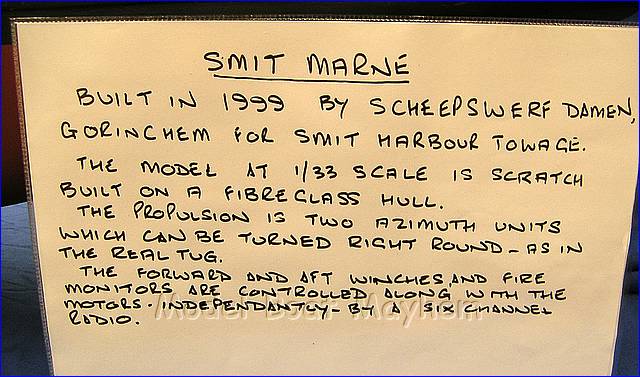 SMIT MARNE
BUILT IN 1999 BY SCHEEPSWERF DAMEN,
GORINCHEM FOR SMIT HARBOUR TOWAGE.
THE MODEL AT 1/33 SCALE IS SCRATCH
BUILT ON A FIBREGLASS HULL.
THE PROPULSION IS TWO AZIMUTH UNITS
WHICH CAN BE TURNED RIGHT ROUND - AS IN
THE REAL TUG.
THE FORWARD AND AFT WINCHES, AND FIRE
MONITORS ARE CONTROLLED ALONG WITH THE
MOTORS - INDEPENDANTLY - BY A SIX CHANNEL
RADIO.
Model Boat Mayhem